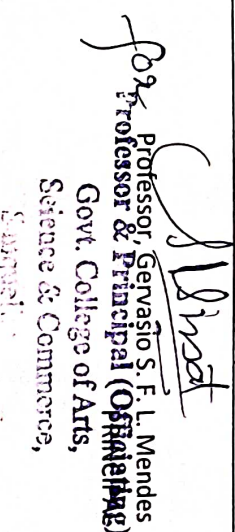 for
Professor, Gervasio S. F. L. Mendes
Professor & Principal (Officiating)
Govt. College of Arts,
Science & Commerce,